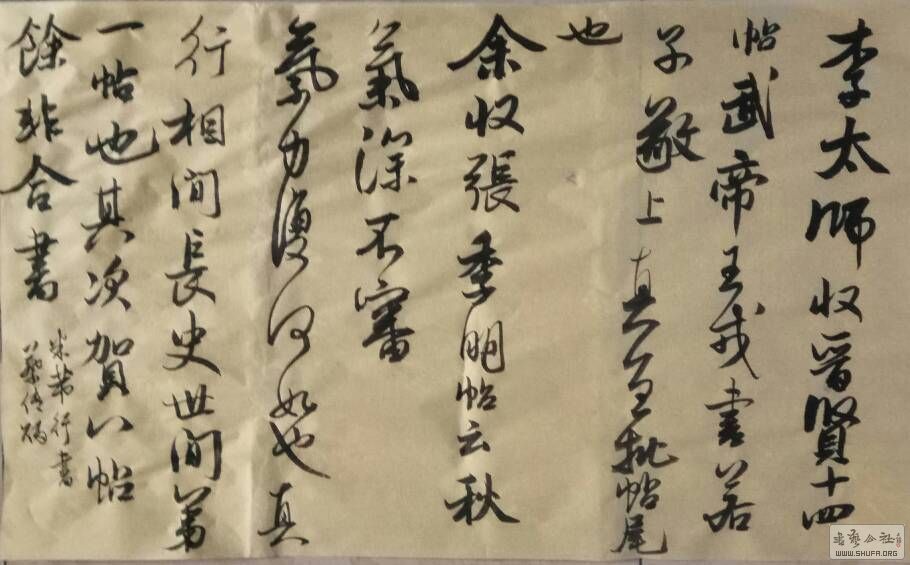 李太師收晉賢十四
帖武帝王戎書若
子敬上真宜批帖尾
也
余收張季明帖云秋
氣深不審
氣力復何如也真
行相間長史世間第
一帖也其次賀八帖
餘非合書
米芾行書
书艺公社
WWW.SHUFA.ORG